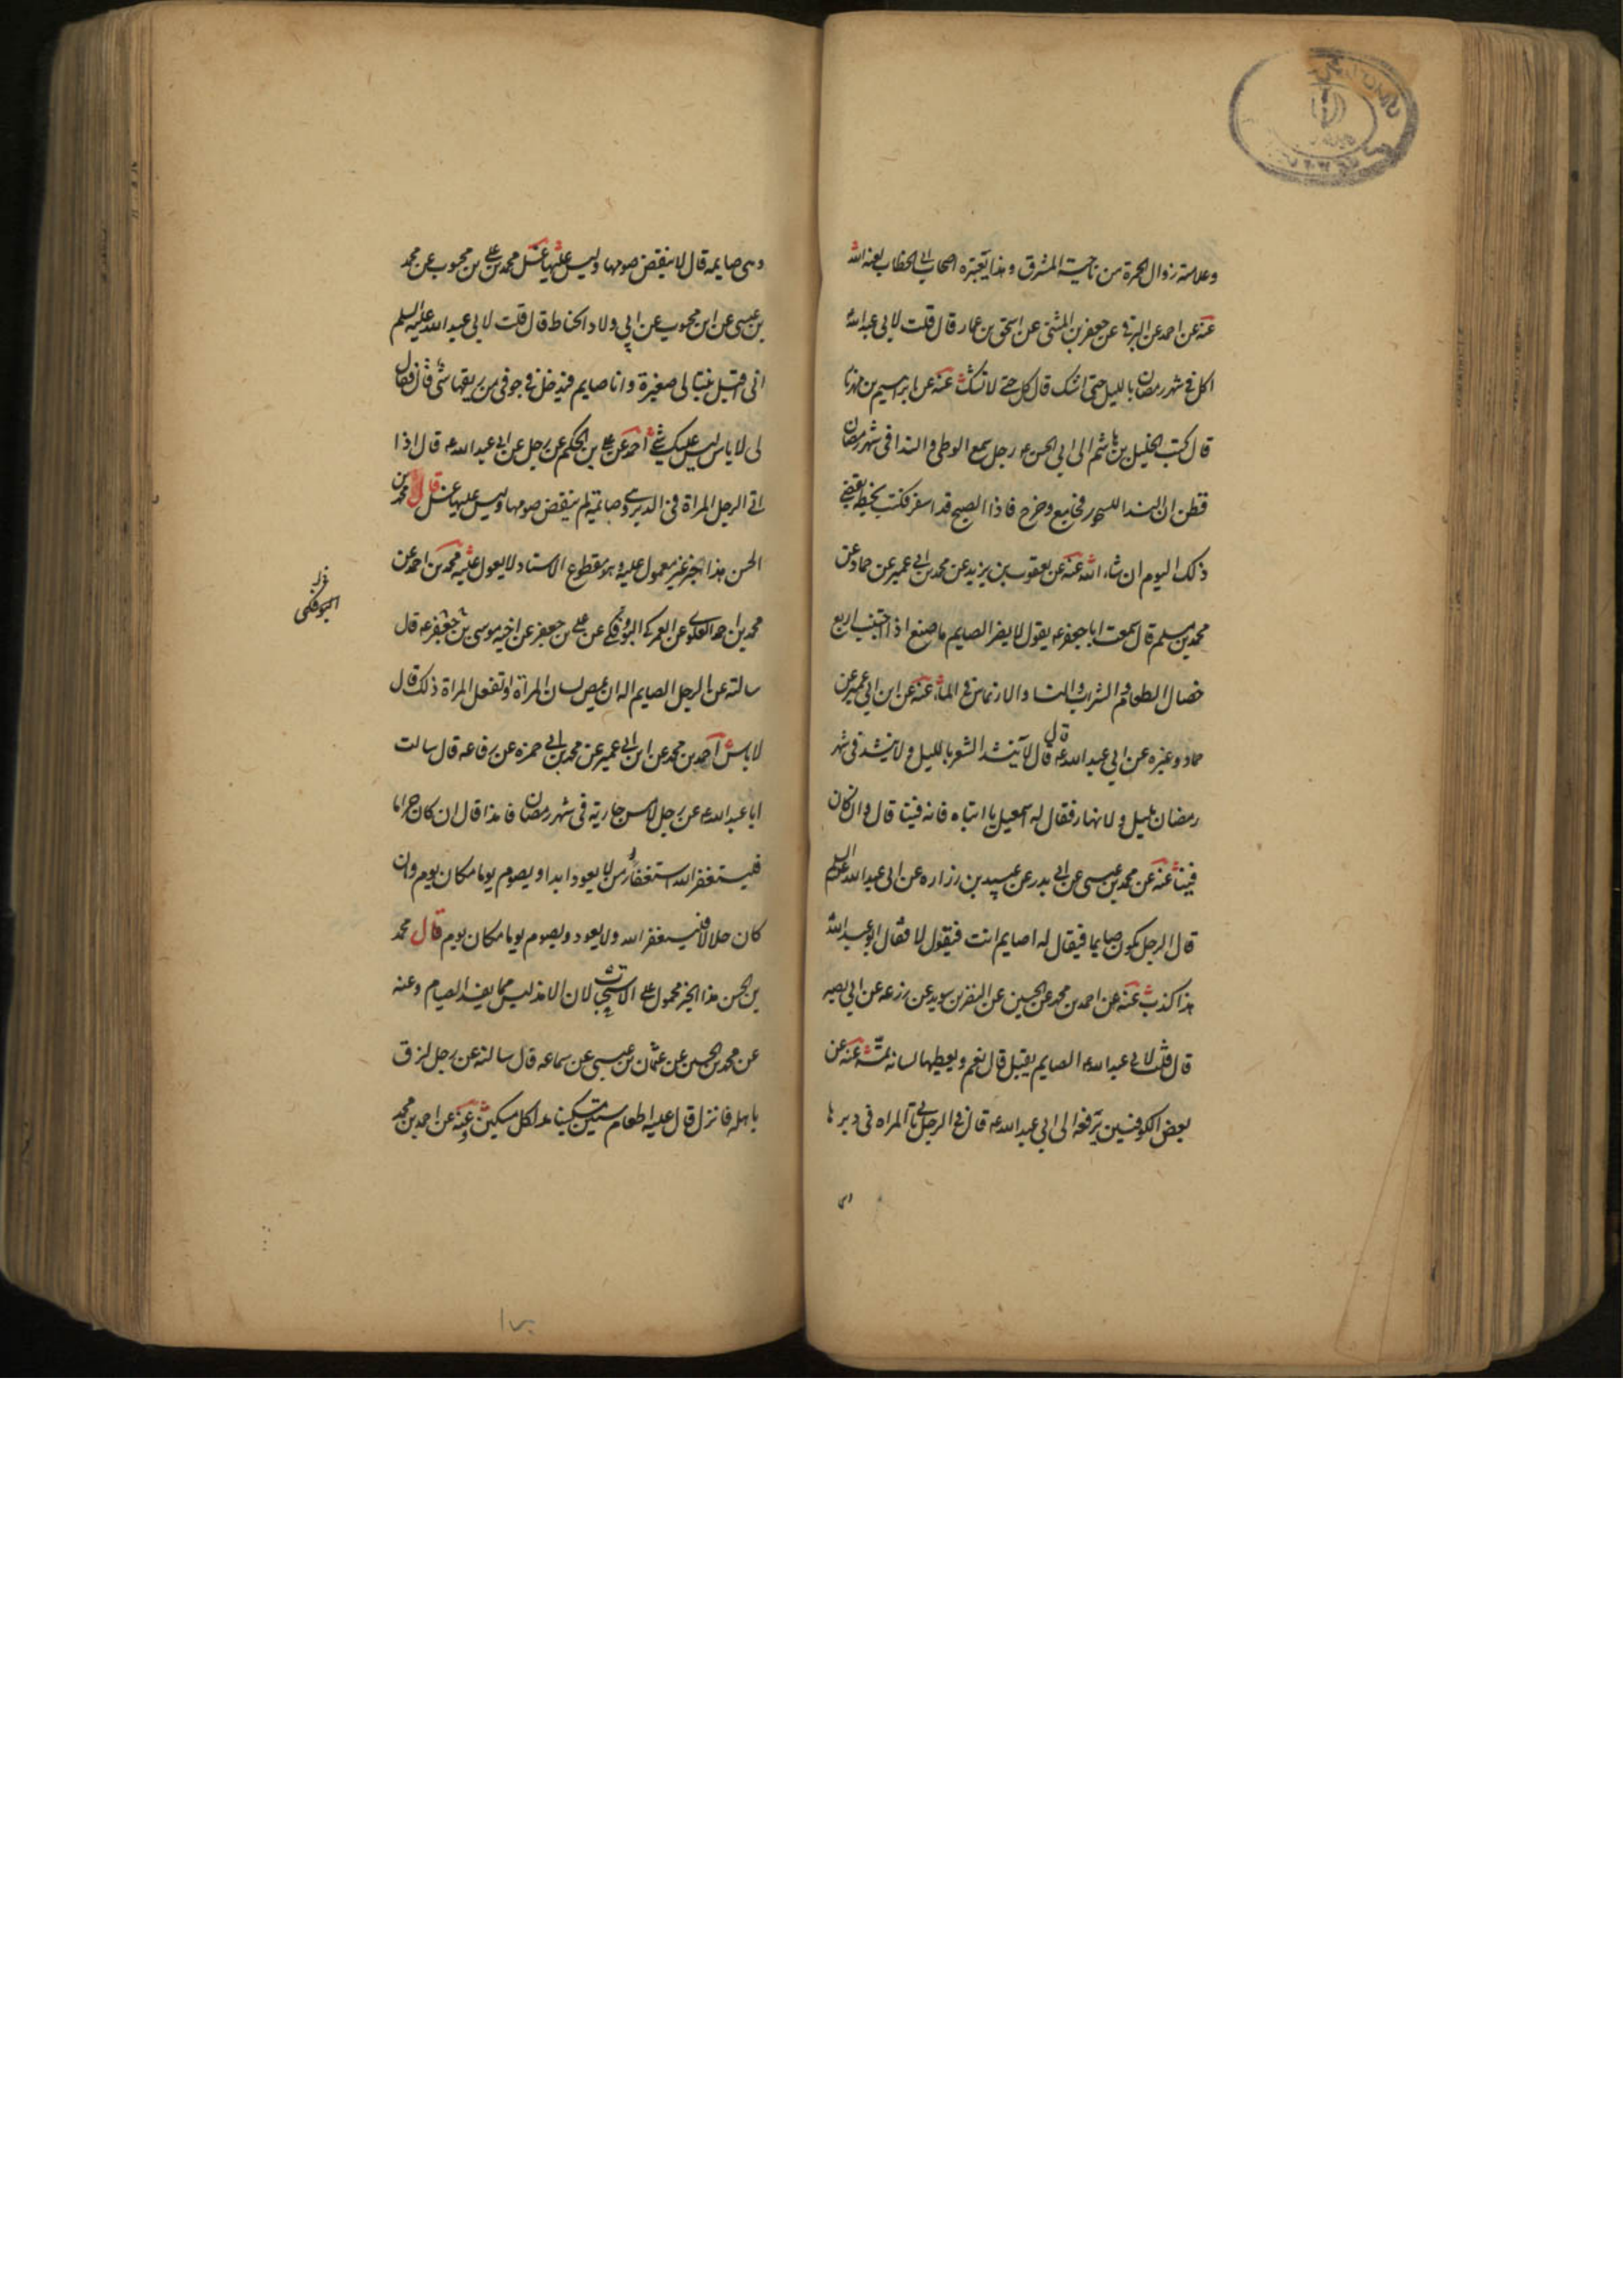 وعلامة زوال الحمرة من ناحية المشرق وهذا يعتبره اصحاب ابي الخطاب لعنه الله
عنه عن احمد عن البرقي عن جعفر بن المثنى عن اسحق بن عمار قال قلت لابي عبد الله
اكل في شهر رمضان بالليل حتى اشك قال كل حتى لا تشك عنه عن ابراهيم بن مهزيار
قال كتب الخليل بن هاشم الى ابي الحسن ع رجل سمع الوطي والندا في شهر رمضان
فظن ان الندا للسحور فجامع وخرج فاذا الصبح قد اسفر فكتب بخطه يقضي
ذلك اليوم ان شاء الله عنه عن يعقوب بن يزيد عن محمد بن ابي عمير عن حماد عن
محمد بن مسلم قال سمعت ابا جعفر ع يقول لا يضر الصايم ما صنع اذا اجتنب اربع
خصال الطعام والشراب والنسا والارتماس في الماء عنه عن ابن ابي عمير عن
حماد وغيره عن ابي عبد الله ع قال قال لا ينشد الشعر بالليل ولا ينشد في شهر
رمضان بليل ولا نهار فقال له اسمعيل يا ابتاه فانه فينا قال وان كان
فينا عنه عن محمد بن عيسى عن ابي بدر عن عبيد بن زراره عن ابي عبد الله عليه السلم
قال الرجل يكون صايما فيقال له اصايم انت فيقول لا فقال ابو عبد الله
هذا كذب عنه عن احمد بن محمد عن الحسين عن النضر بن سويد عن زرعه عن ابي بصير
قال قلت لابي عبد الله ع الصايم يقبل قال نعم ويعطيها لسانه تمصه عنه عن
بعض الكوفيين يرفعه الى ابي عبد الله ع قال في الرجل ياتي المراه في دبرها
وهى
وهى صايمه قال لا ينقض صومها وليس عليها غسل محمد بن علي بن محبوب عن محمد
بن عيسى عن ابن محبوب عن ابي ولاد الحناط قال قلت لابي عبد الله عليه السلم
انى اقبل بنتا لى صغيرة وانا صايم فيدخل في جوفى من ريقها شئ قال فقال
لى لا باس ليس عليك شئ احمد عن علي بن الحكم عن رجل عن ابي عبد الله ع قال اذا
اتى الرجل المراة فى الدبر وهى صايمة لم ينقض صومها وليس عليها غسل قال محمد بن
الحسن هذا الخبر غير معمول عليه وهو مقطوع الاسناد لا يعول عليه محمد بن احمد عن
محمد بن احمد العلوى عن العمركي البوفكي عن علي بن جعفر عن اخيه موسى بن جعفر ع قال
سالته عن الرجل الصايم اله ان يمص لسان المرأة او تفعل المراة ذلك قال
لا باس احمد بن محمد عن ابن ابي عمير عن محمد بن ابي حمزه عن رفاعه قال سالت
ابا عبد الله ع عن رجل لامس جارية فى شهر رمضان فامذا قال ان كان حراما
فليستغفر الله استغفار من لا يعود ابدا ويصوم يوما مكان يوم وان
كان حلالا فليستغفر الله ولا يعود ويصوم يوما مكان يوم قال محمد
بن الحسن هذا الخبر محمول على الاستحباب لان الامذا ليس مما يفسد الصيام وعنه
عن محمد بن الحسين عن عثمان بن عيسى عن سماعه قال سالته عن رجل لزق
باهله فانزل قال عليه اطعام ستين مسكينا مد لكل مسكين وعنه عن احمد بن محمد
البوفكى